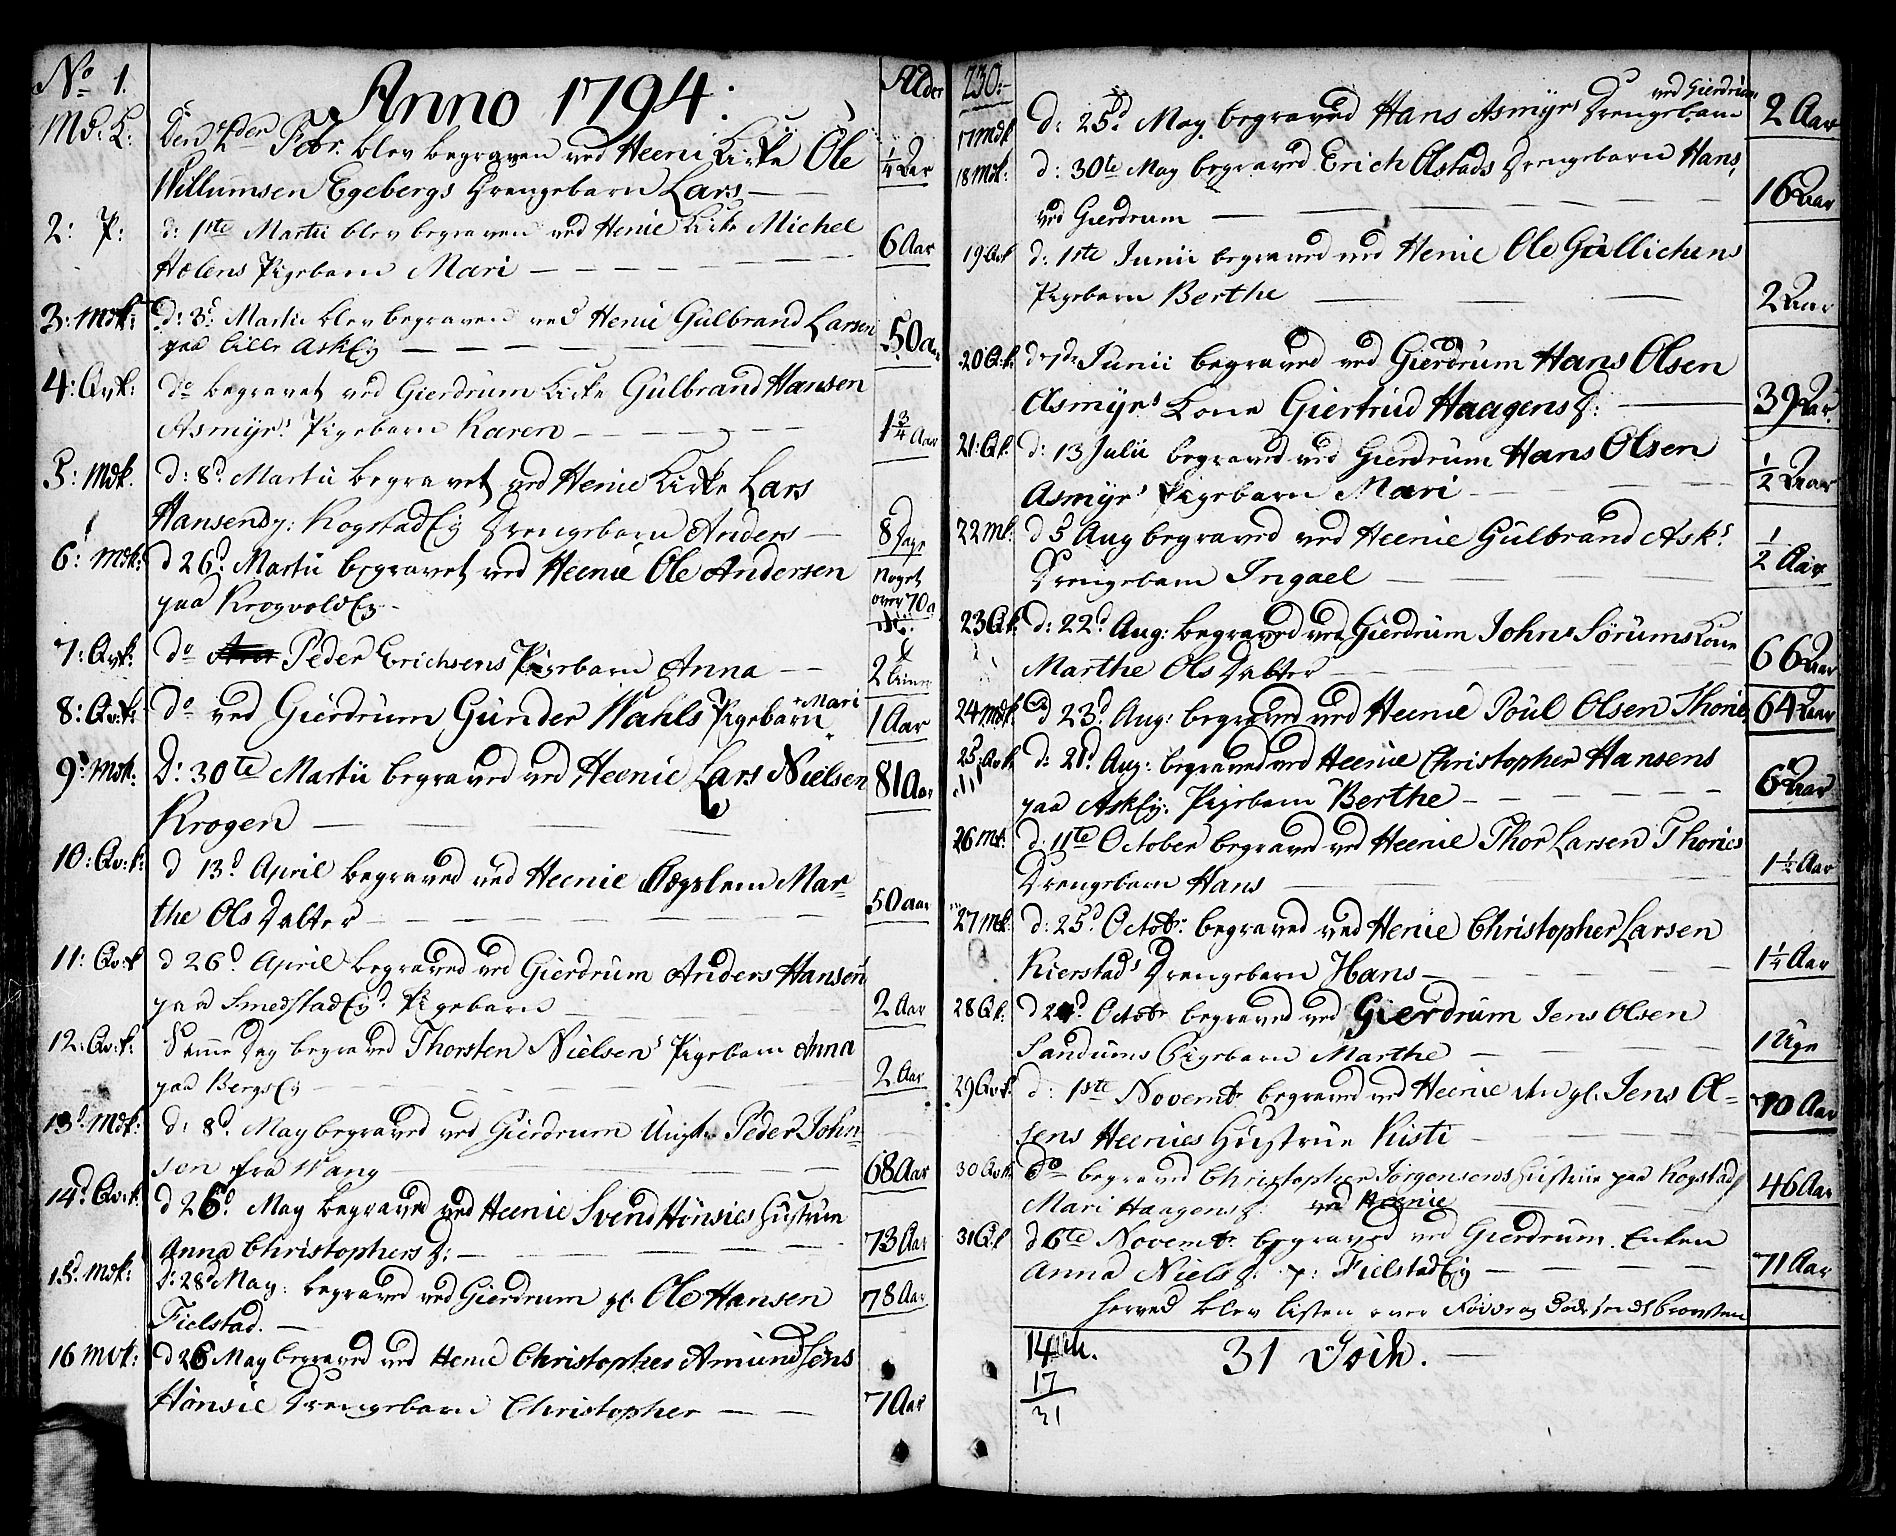 No 1.
Anno 1794.
Alder
Md: K:
Den 2der Febr. blev begraven ved Heeni Kirke Ole
1/4 Aar
Willumsen Egebergs Drengebarn Lars
2: P:
d: 1ste Martii blev begraven ved Henie Kirke Michel
6 Aar
Holens Pigebarn Mari
3: Mdk:
d: 3d Martii blev begraven ved Henie Gulbrand Larsen
50 a
paa lille Ask Eg
4: Qvk:
do begravet ved Gierdrum Kirke Gulbrand Hansen
Asmyrs Pigebarn Karen
1 3/4 Aar
5: Mdk.
d: 8d Martii begravet ved Henie Kirke Lars
Hansen Kogstad Eg Drengebarn Anders
8 Dage
6: Mdk:
d 26d Martii begravet ved Heenie Ole Andersen
Noget over 70 a
paa Krogvold Eg
7: Qvk:
do Peder Erichsens Pigebarn Anna
2
8: Qvk:
do ved Gierdrum Gunder Wahls Pigebarn Mari
1 Aar
9: Mdk:
D: 30te Martii begraved ved Heenie Lars Nielsen
81 Aar
Krogen
10: Qv:k:
d 13d April begraved ved Heenie Lægslem Mar-
the Ols Datter
50 aar
11: Qv:k
d 26d April begraved ved Gierdrum Anders Hansen
paa Smedstad Eg: Pigebarn
2 Aar
12: Qv:k:
Samme Dag begraved Thorsten Nielsens Pigebarn Anna
paa Bergs Eg
2 Aar
13: Mdk:
d: 8d May begraved ved Gierdrum Peder John-
son fra Wang
68 Aar
14d Qv:k
d 26d May begraved ved Heenie Svend Hønsies Hustrue
Anna Christophers D:
73 Aar
15d mdk:
D: 28d May: begraved ved Gierdrum gl: Ole Hansen
78 Aar
Fielstad.
16 mdk:
d 26 May begraved ved Henie Christopher Amundsens
Hønsie Drengebarn Christopher
7 Aar
230.
17 mdk
d: 25d May begraved Hans Asmyrs Drengebarn ved Gierdrum
2 Aar
18 Mdk:
d: 30te May begraved Erich Olstads Drengebarn Hans,
ved Gierdrum
16 Aar
19 Qvk
d: 1ste Junii begraved ved Henie Ole Gullichens
Pigebarn Berthe
2 Aar
20 Q:k:
d 7de Junii begraved ved Gierdrum Hans Olsen
Asmyrs Kone Giertrud Haagens D:
39 Aar
21: Qk:
d: 13 Julii begraved ved Gierdrum Hans Olsen
Asmyrs Pigebarn Mari
1/2 Aar
22 Mk:
d 5 Aug begraved ved Heenie Gulbrand Asks
Drengebarn Ingael
1/2 Aar
23 Qk:
d: 22d Aug: begraved ved Gierdrum Johns Sørums Kone
Marthe Ols Datter
66 Aar
24 mdk
d 23d Aug: begraved ved Heenie Poul Olsen Thonie
64 Aar
25 Qvk
d: 21d Aug: begraved ved Heenie Christopher Hansens
paa Ask Eg: Pigebarn Berthe
6 Aar
26 Mk:
d: 11te October begraved ved Heenie Thor Larsen Thonies
Drengebarn Hans
1 1/2 Aar
27 Mk:
d: 25d Octobr: begraved ved Henie Christopher Larsen
Kierstads Drengebarn Hans
1 1/4 Aar
28 Qk:
d 2 d Octobr begraved ved Gierdrum Jens Olsen
Sandums Pigebarn Marthe
1 Uge
29 Qvk:
d: 1ste Novembr begraved ved Heenie gl: Jens Ol-
sens Heenies Hustrue Kisti
70 Aar
30 Qvk
do begraved Christopher Jørgensens Hustrue paa Kogstad
Mari Haagens D: ved Heenie
46 Aar
31 Qk
d 6te Novembr: begraved ved Gierdrum. Enken
Anna Niels D: p: Fielstad Eg
71 Aar
herved blev listen over Fødde og Døde
14
17
31
31 Døde.